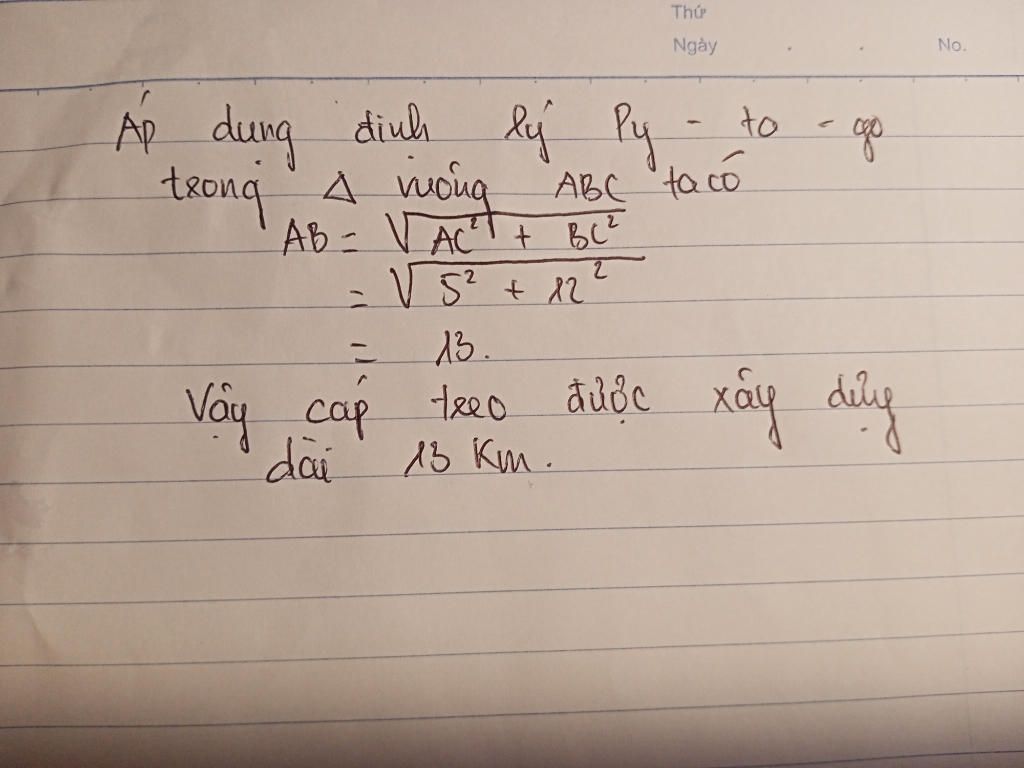 Thứ
Ngày . . No.
Áp dụng định lý Py - ta - go
trong Δ vuông ABC ta có
AB = √(AC² + BC²)
= √(5² + 12²)
= 13.
Vậy cáp treo được xây dựng
dài 13 Km.